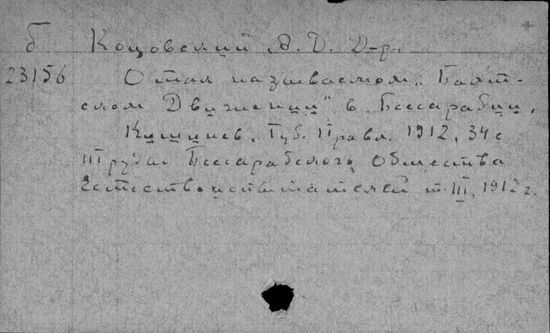 Б Коцовский А. Д. Д-р.
23156 О так называемом „Балт-
ском Движении" в Бессарабии.
Кишинев. Губ. Правл. 1912, 34 с
Труды Бессарабского Общества
Естествоиспытателей т. III, 1912 г.